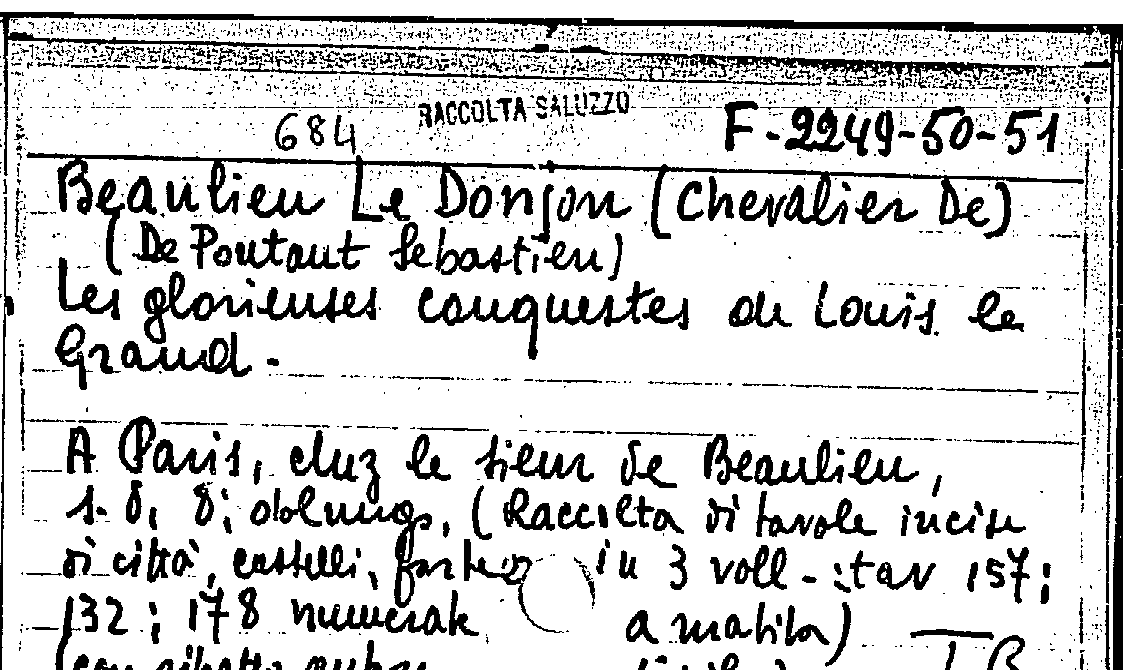 684 RACCOLTA SALUZZO F-2249-50-51
Beaulieu Le Donjon (Chevalier De)
(De Poutaut Sebastien)
Les glorieuses conquestes de Louis le
Grand.
A Paris, chez le sieur de Beaulieu,
s. d., 8; oblungo, (Raccolta di tavole incise
di città, castelli, in 3 voll - : tav 157;
132; 178 numerate a matita)